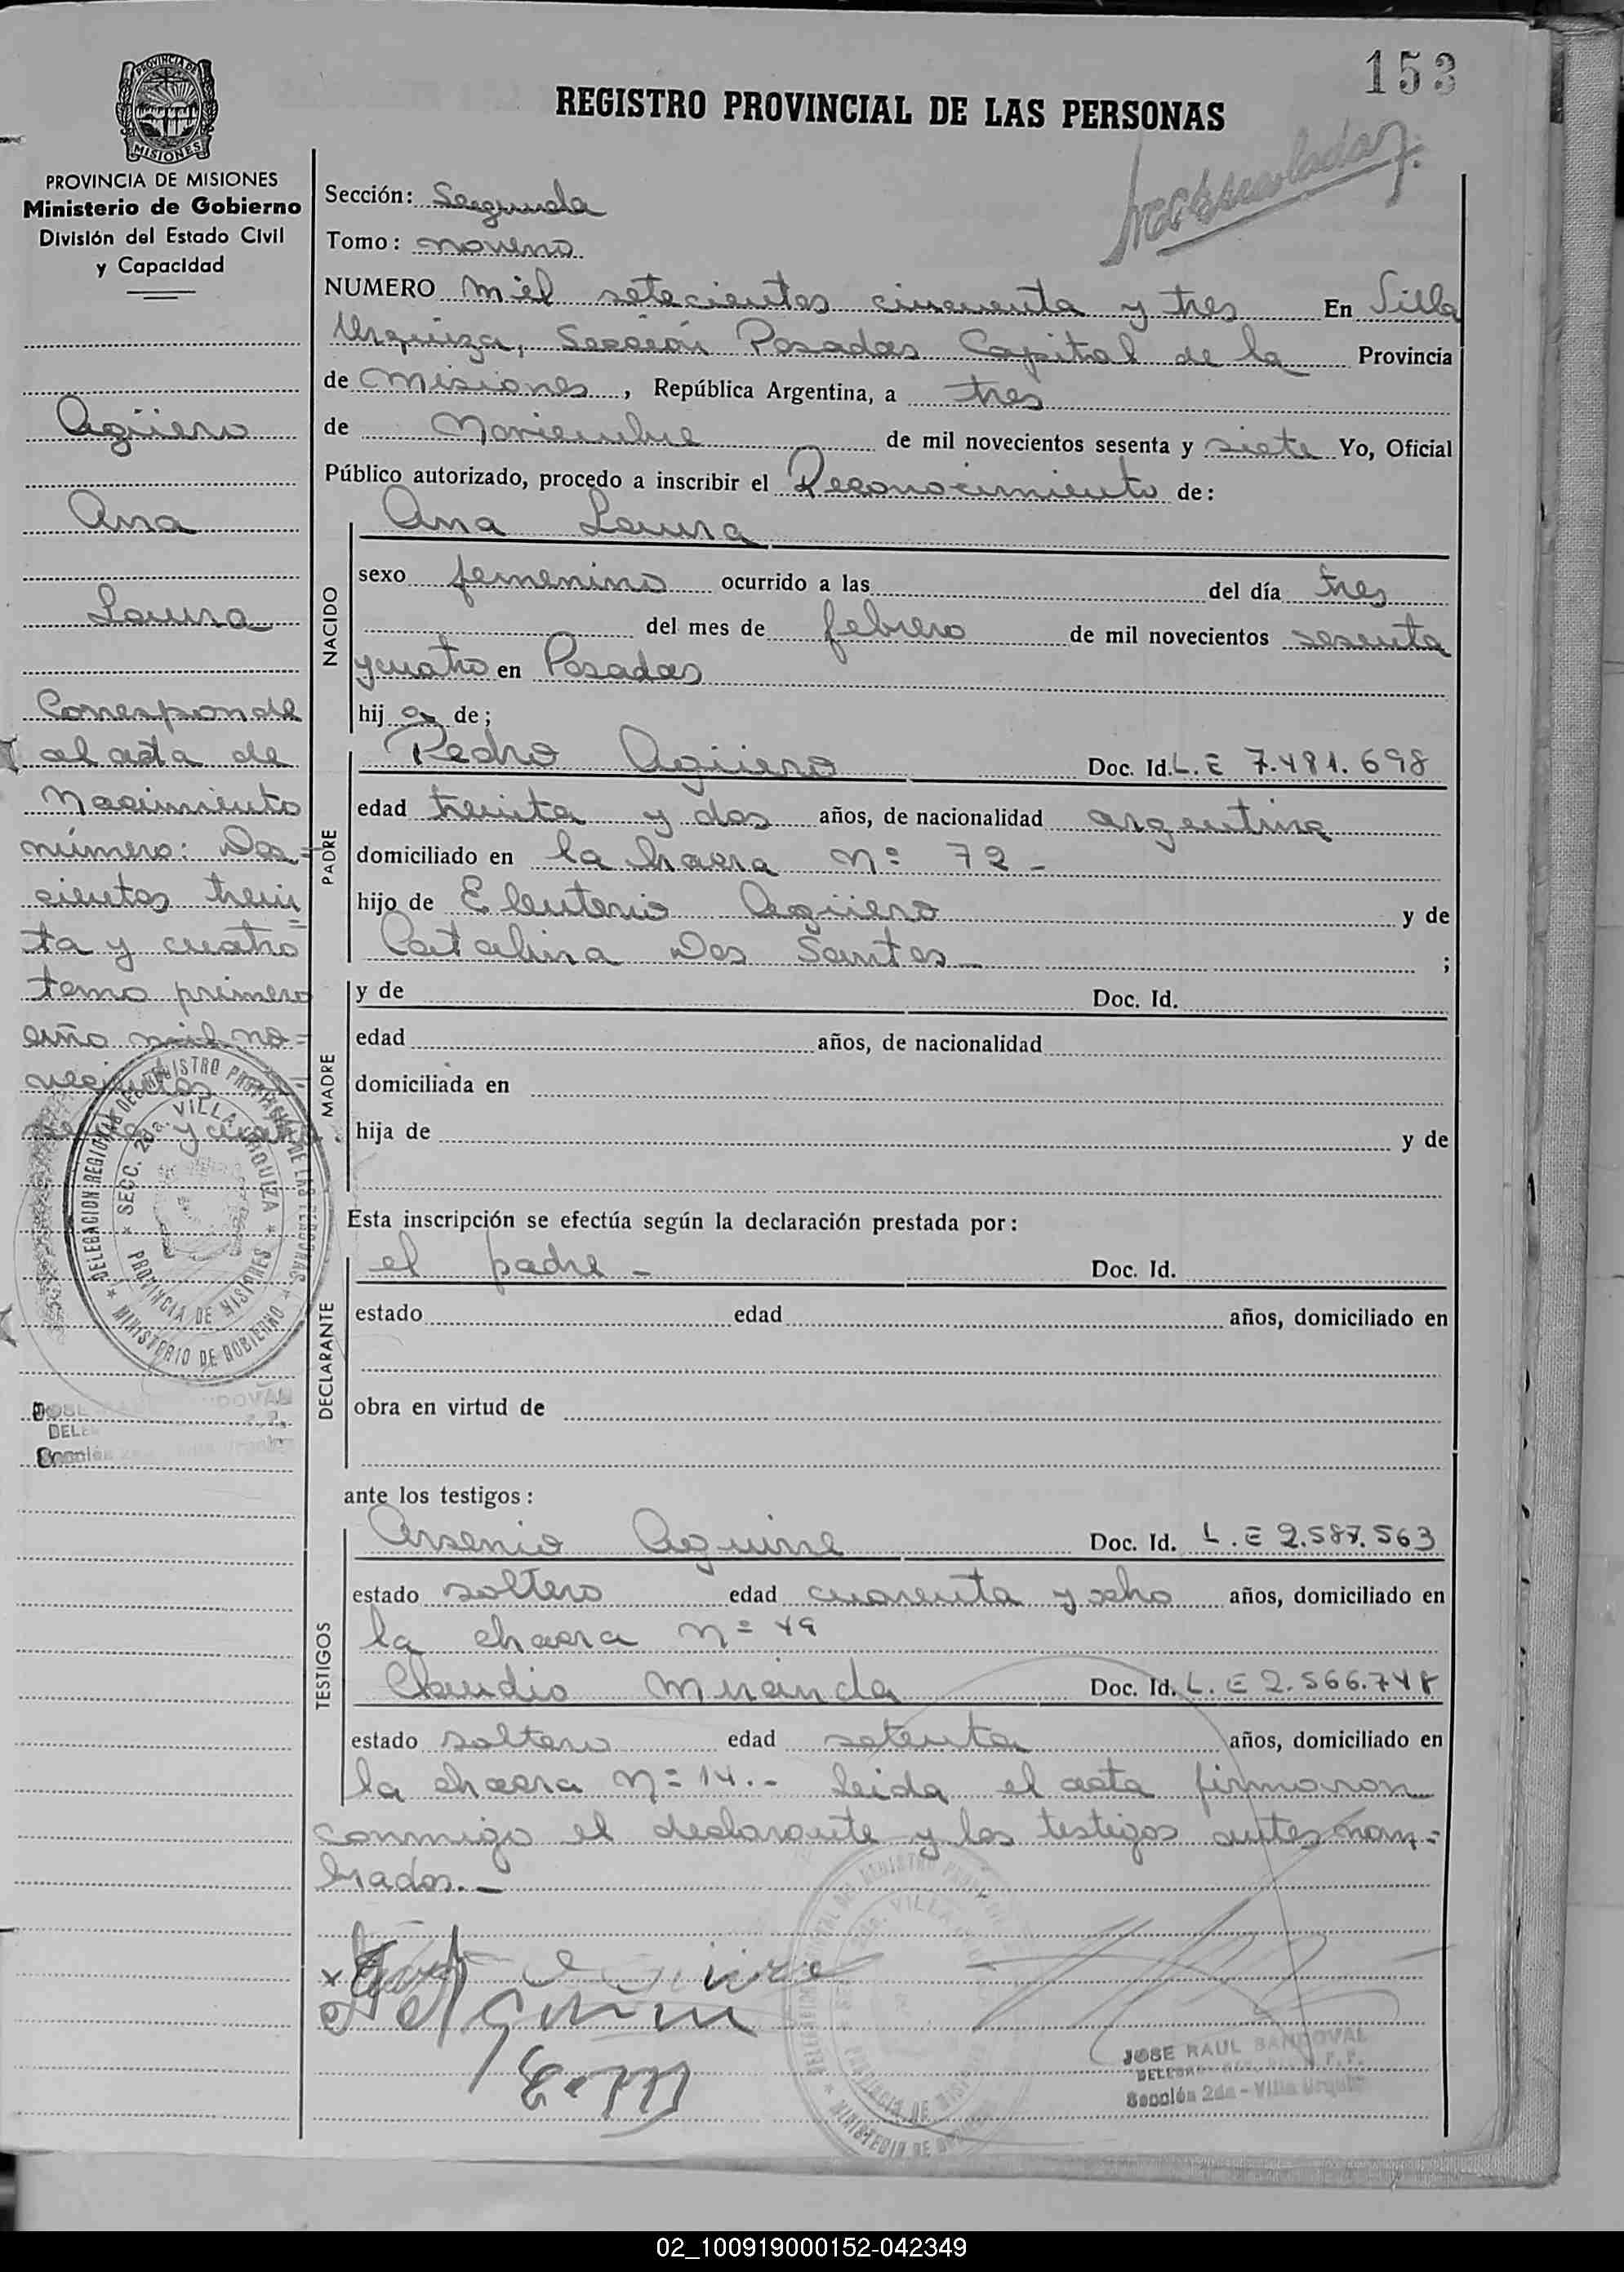 153
REGISTRO PROVINCIAL DE LAS PERSONAS
PROVINCIA DE
MISIONES
PROVINCIA DE MISIONES
Ministerio de Gobierno
División del Estado Civil
y Capacidad
Agüero
Ana
Laura
Corresponde
al acta de
Nacimiento
número: Dos=
cientos trein
ta y cuatro
tomo primero
año mil no=
vecientos
y cuatro.
DELEGACION REGIONAL DEL REGISTRO PROVINCIAL DE LAS PERSONAS
SECC. 2da. VILLA URQUIZA
PROVINCIA DE MISIONES
MINISTERIO DE GOBIERNO
JOSE SANDOVAL
Sección
Sección: Segunda
Tomo: noveno
NUMERO mil setecientos cincuenta y tres En Villa
Urquiza, Sección Posadas Capital de la Provincia
de Misiones, República Argentina, a tres
de Noviembre de mil novecientos sesenta y siete Yo, Oficial
Público autorizado, procedo a inscribir el Reconocimiento de:
NACIDO
Ana Laura
sexo femenino ocurrido a las del día tres
del mes de febrero de mil novecientos sesenta
y cuatro en Posadas
hij a de;
PADRE
Pedro Agüero Doc. Id. L.E 7.481.698
edad treinta y dos años, de nacionalidad argentina
domiciliado en la chacra Nº 72 -
hijo de Eleuterio Agüero y de
Catalina Dos Santos ;
MADRE
y de Doc. Id.
edad años, de nacionalidad
domiciliada en
hija de y de
Esta inscripción se efectúa según la declaración prestada por:
DECLARANTE
el padre - Doc. Id.
estado edad años, domiciliado en
obra en virtud de
ante los testigos:
TESTIGOS
Arsenio Aguirre Doc. Id. L.E 2.587.563
estado soltero edad cuarenta y ocho años, domiciliado en
la chacra Nº 49
Claudio Miranda Doc. Id. L.E 2.566.748
estado soltero edad setenta años, domiciliado en
la chacra Nº 14.- Leida el acta firmaron
conmigo el declarante y los testigos antes nom=
brados.-
JOSE RAUL SANDOVAL
Sección 2da - Villa Urquiza
02_100919000152-042349